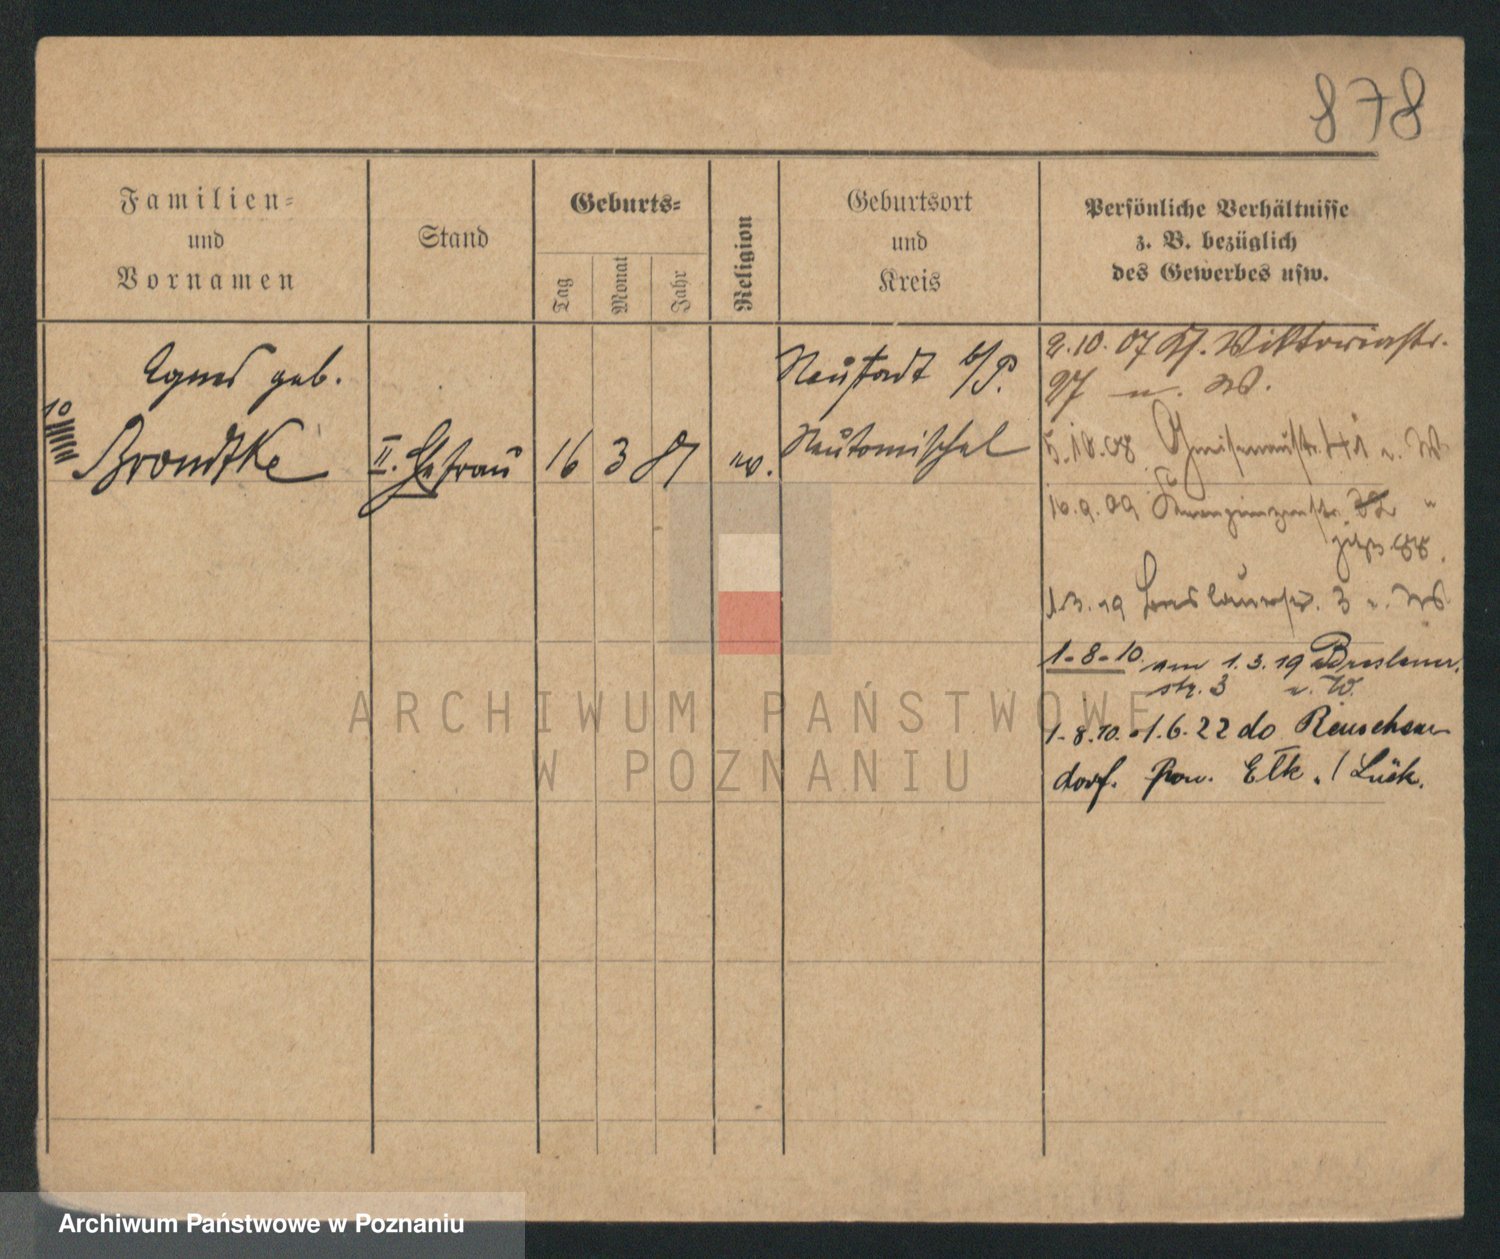 878
Familien=
und
Vornamen
Stand
Geburts=
Tag
Monat
Jahr
Religion
Geburtsort
und
Kreis
Persönliche Verhältnisse
z. B. bezüglich
des Gewerbes usw.
Agnes geb.
10
Brondtke
II. Ehefrau
16 3 87
ev.
Neustadt b/P.
Neutomischel
2.10.07 Viktoriastr.
27 u. W.
5.10.08 Gneisenaustr. 41 u. W
10.9.09 str. 32 "
jetzt 88.
1.3.19 Breslauerstr. 3 u. W.
1-8-10. am 1.3.19 Breslauer.
str. 3 u. W.
1-8.10. 1.6.22 do Reuschen
dorf. Pow. Ełk. / Lück.
ARCHIWUM PAŃSTWOWE
W POZNANIU
Archiwum Państwowe w Poznaniu